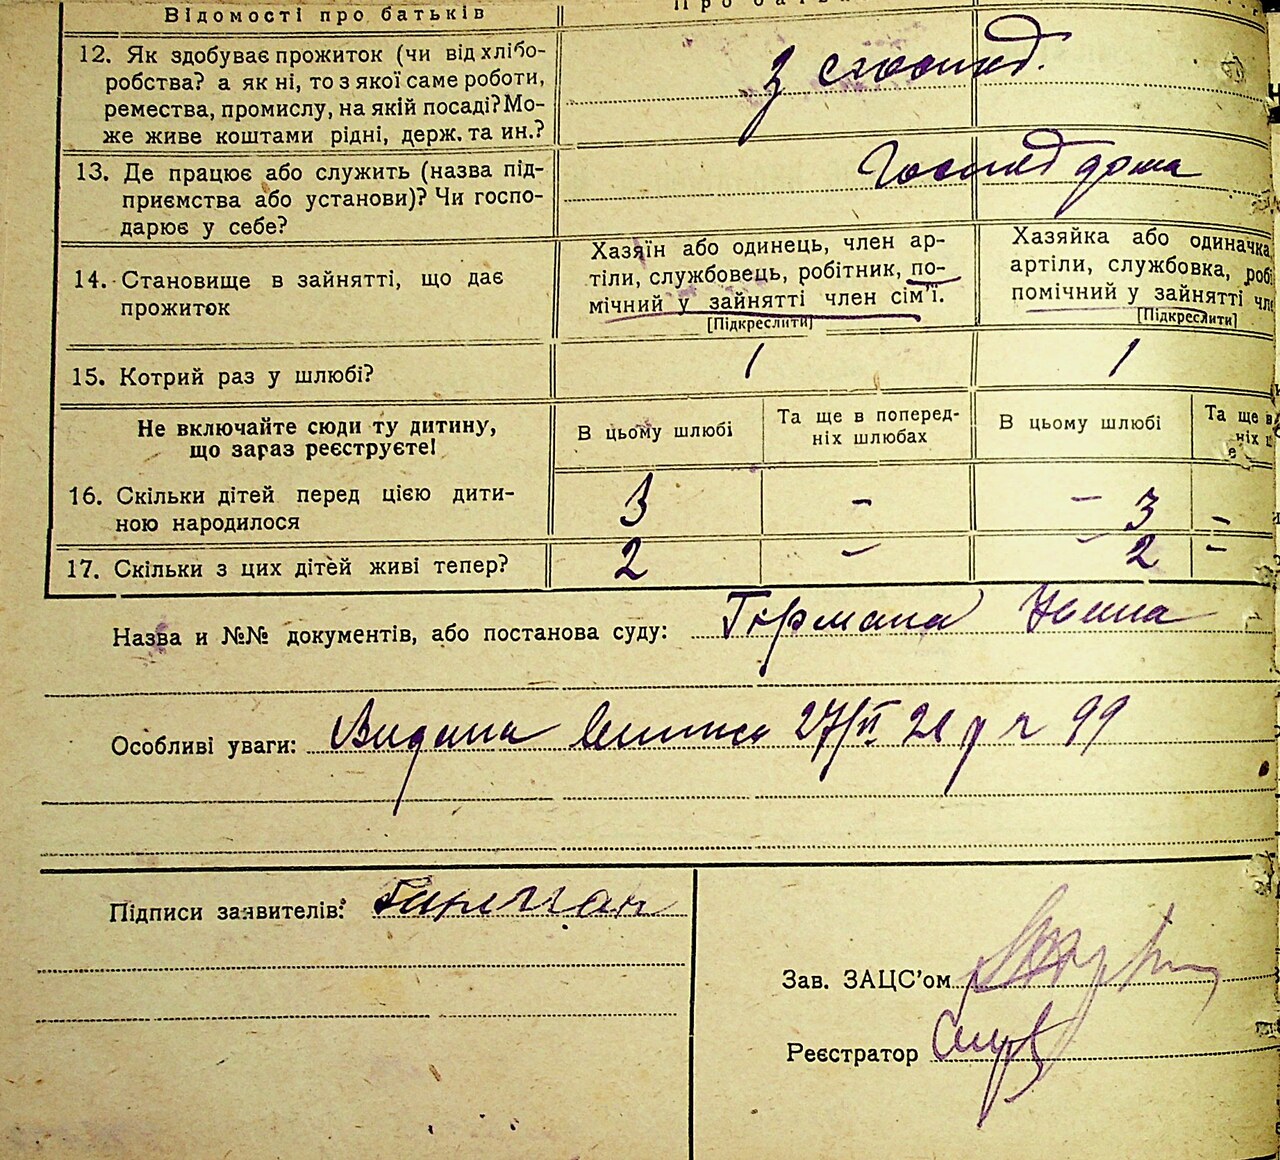 Відомості про батьків
12. Як здобуває прожиток (чи від хлібо-
робства? а як ні, то з якої саме роботи,
ремества, промислу, на якій посаді? Мо-
же живе коштами рідні, держ. та ин.?
13. Де працює або служить (назва під-
приємства або установи)? Чи госпо-
дарює у себе?
дома
14. Становище в зайнятті, що дає
прожиток
Хазяїн або одинець, член ар-
тіли, службовець, робітник, по-
мічний у зайнятті член сім'ї.
[Підкреслити]
Хазяйка або одиначка
артіли, службовка, робі
помічний у зайнятті чле
[Підкреслити]
15. Котрий раз у шлюбі?
1
1
Не включайте сюди ту дитину,
що зараз реєструєте!
В цьому шлюбі
Та ще в поперед-
ніх шлюбах
В цьому шлюбі
Та ще в
ніх
16. Скільки дітей перед цією дити-
ною народилося
3 - - 3 -
17. Скільки з цих дітей живі тепер?
2 - - 2 -
Назва и №№ документів, або постанова суду:
Особливі уваги: Видана 27/II 99
Підписи заявителів:
Зав. ЗАЦС'ом
Реєстратор